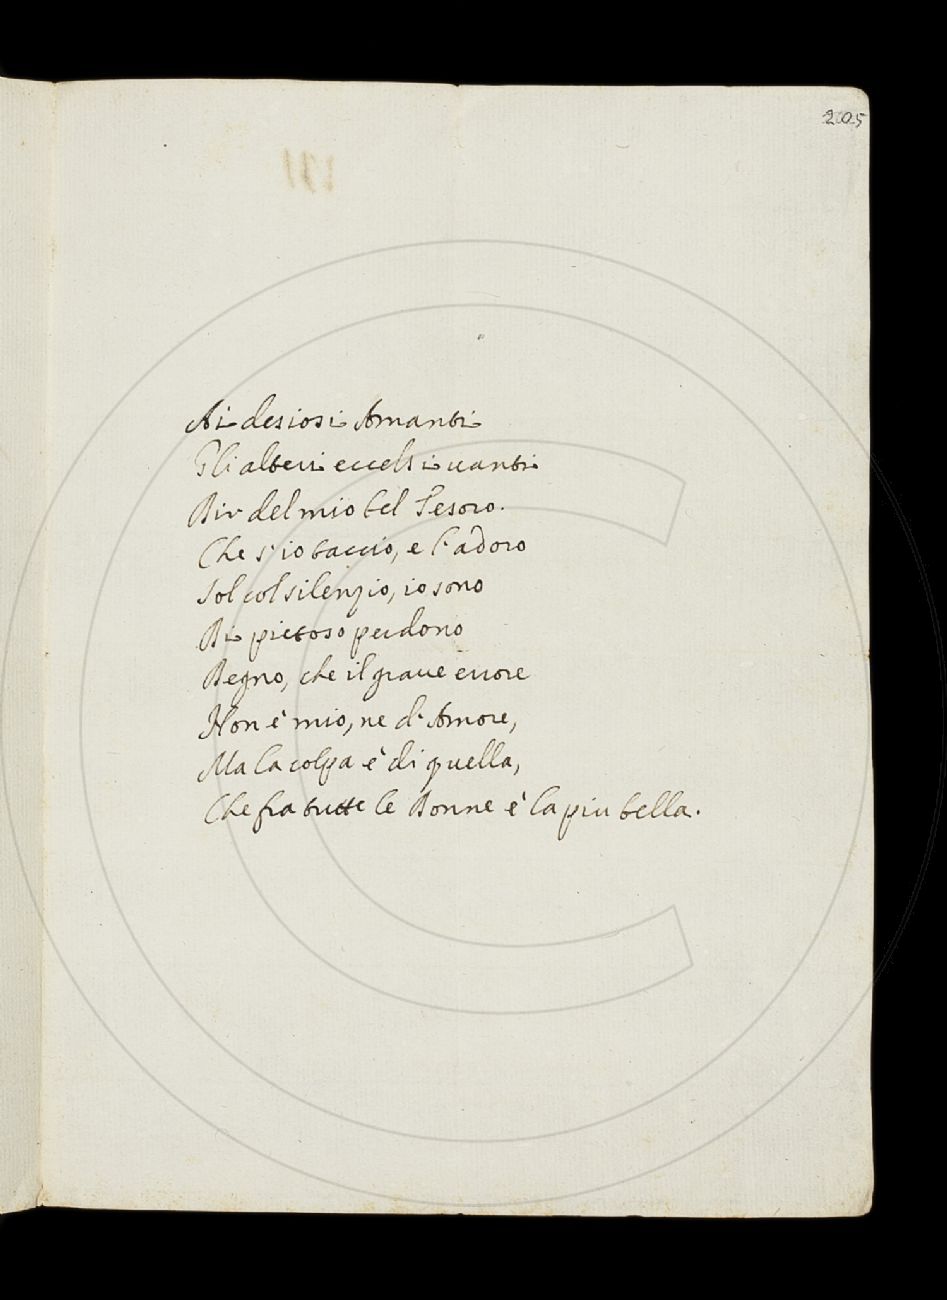 205
Ai desiosi Amanti
Gli alteri eccelsi uanti
Dir del mio bel Tesoro.
Che s'io taccio, e l'adoro
Sol col silenzio, io sono
Di pietoso perdono
Degno, che il graue errore
Non è mio, ne d'Amore,
Ma la colpa è di quella,
Che fra tutte le Donne è la piu bella.